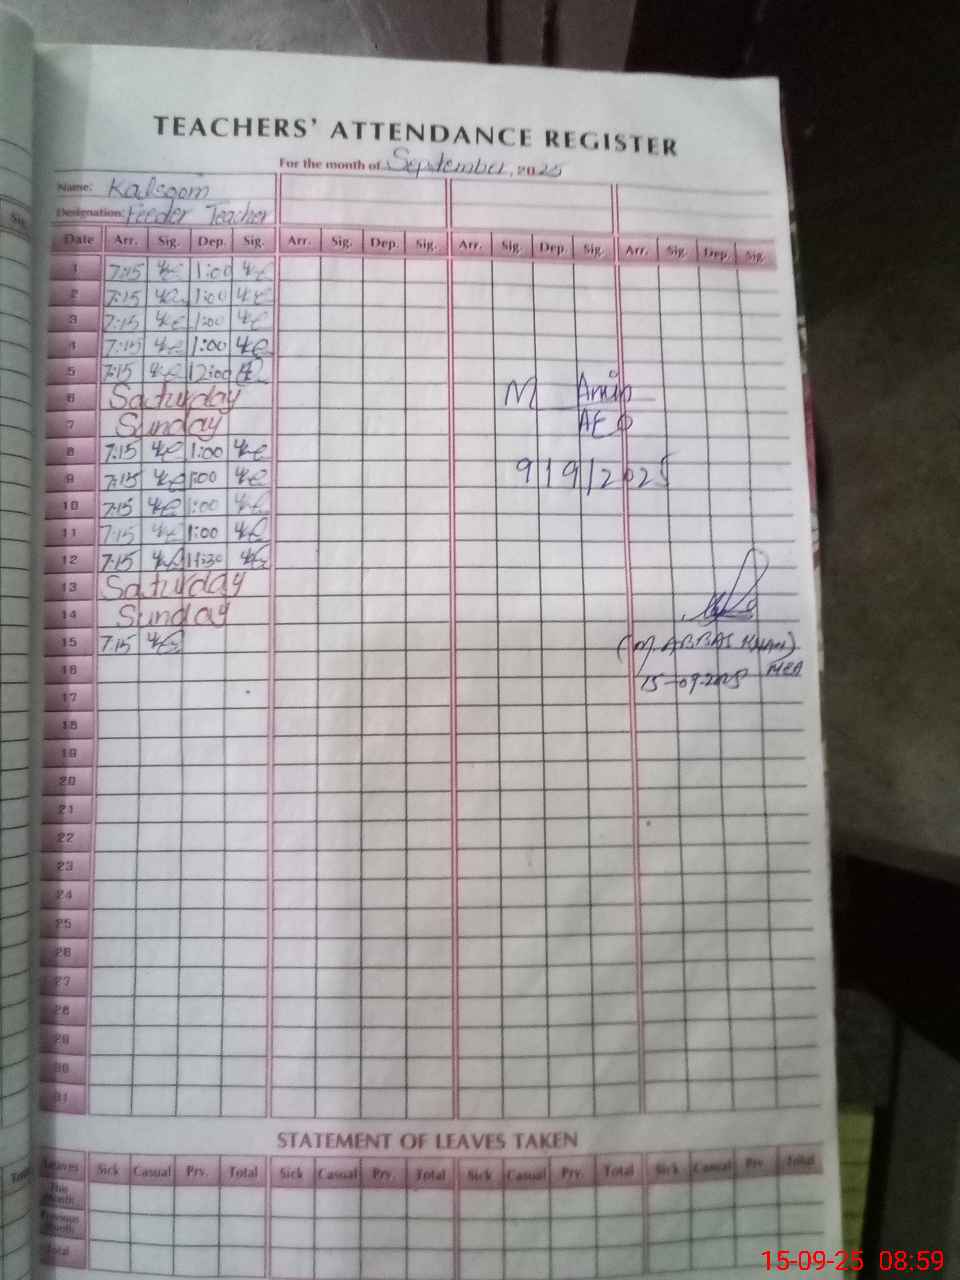 TEACHERS' ATTENDANCE REGISTER
For the month of September, 2025
Name: Kalsoom
Designation: Feeder Teacher
Date Arr. Sig. Dep. Sig. Arr. Sig. Dep. Sig. Arr. Sig. Dep. Sig. Arr. Sig. Dep. Sig.
1 7:15 1:00
2 7:15 1:00
3 7:15 1:00
4 7:15 1:00
5 7:15 12:00
6 Saturday M Amin
7 Sunday AEO
8 7:15 1:00
9 7:15 1:00 9/9/2025
10 7:15 1:00
11 7:15 1:00
12 7:15 11:30
13 Saturday
14 Sunday
15 7:15 (M. ABBAS KHAN)
16 MEA
15-09-2025
17
18
19
20
21
22
23
24
25
26
27
28
29
30
31
STATEMENT OF LEAVES TAKEN
Leaves Sick Casual Prv. Total Sick Casual Prv. Total Sick Casual Prv. Total Sick Casual Prv. Total
This Month
Previous Month
Total
15-09-25 08:59